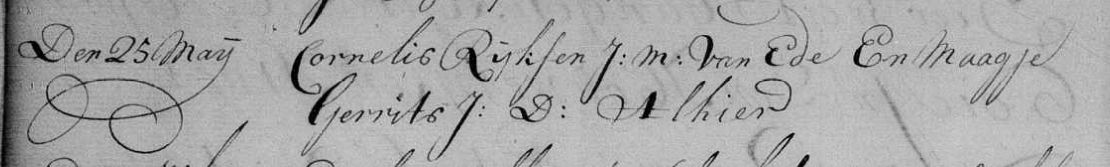 Den 25 Maÿ Cornelis Rÿksen J: m: Van Ede En Maagje
Gerrits J: D: Alhier